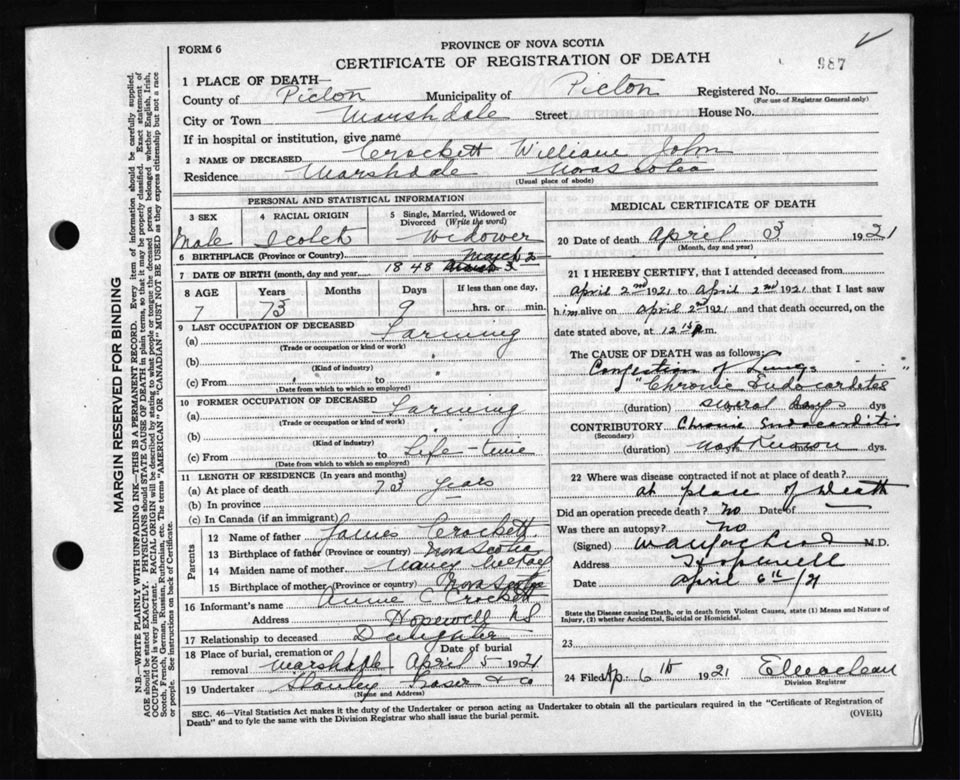 FORM 6
PROVINCE OF NOVA SCOTIA
CERTIFICATE OF REGISTRATION OF DEATH
987
1 PLACE OF DEATH—
County of Pictou Municipality of Pictou Registered No.
(For use of Registrar General only)
City or Town Marshdale Street House No.
If in hospital or institution, give name
2 NAME OF DECEASED Crockett William John
Residence Marshdale Nova Scotia
(Usual place of abode)
PERSONAL AND STATISTICAL INFORMATION
3 SEX 4 RACIAL ORIGIN 5 Single, Married, Widowed or Divorced (Write the word)
Male Scotch Widower
6 BIRTHPLACE (Province or Country)
7 DATE OF BIRTH (month, day and year) 1848 March 2
8 AGE Years Months Days If less than one day,
7 73 9 hrs. or min.
9 LAST OCCUPATION OF DECEASED
(a) Farming
(Trade or occupation or kind of work)
(b)
(Kind of industry)
(c) From to
(Date from which to which so employed)
10 FORMER OCCUPATION OF DECEASED
(a) Farming
(Trade or occupation or kind of work)
(b)
(Kind of industry)
(c) From Life-time
(Date from which to which so employed)
11 LENGTH OF RESIDENCE (In years and months)
(a) At place of death 73 years
(b) In province
(c) In Canada (if an immigrant)
Parents
12 Name of father James Crockett
13 Birthplace of father (Province or country) Nova Scotia
14 Maiden name of mother Nancy
15 Birthplace of mother (Province or Country) Nova Scotia
16 Informant's name Annie C Crockett
Address Hopewell NS
17 Relationship to deceased Daughter
18 Place of burial, cremation or removal Marshdale Date of burial April 5 1921
19 Undertaker Stanley Fraser & Co
(Name and Address)
MEDICAL CERTIFICATE OF DEATH
20 Date of death April 3 1921
(Month, day and year)
21 I HEREBY CERTIFY, that I attended deceased from
April 2nd 1921 to April 2nd 1921 that I last saw
him alive on April 2nd 1921 and that death occurred, on the
date stated above, at 12 15 p.m.
The CAUSE OF DEATH was as follows:
Congestion of Lungs
"Chronic Endocarditis"
(duration) Several Days dys
CONTRIBUTORY Chronic Endocarditis
(Secondary)
(duration) Not Known dys.
22 Where was disease contracted if not at place of death?
at place of Death
Did an operation precede death? No Date of —
Was there an autopsy? No
(Signed) M.D.
Address Hopewell
Date April 6th/21
State the Disease causing Death, or in death from Violent Causes, state (1) Means and Nature of Injury, (2) whether Accidental, Suicidal or Homicidal.
23
24 Filed Ap. 6th 1921
Division Registrar
SEC. 46—Vital Statistics Act makes it the duty of the Undertaker or person acting as Undertaker to obtain all the particulars required in the "Certificate of Registration of
Death" and to fyle the same with the Division Registrar who shall issue the burial permit. (OVER)
MARGIN RESERVED FOR BINDING
N.B.—WRITE PLAINLY WITH UNFADING INK—THIS IS A PERMANENT RECORD. Every item of information should be carefully supplied.
AGE should be stated EXACTLY. PHYSICIANS should STATE CAUSE OF DEATH in plain terms, so that it may be properly classified. Exact statement of
OCCUPATION is very important. RACIAL ORIGIN will be described by stating to what people or tongue the deceased person belonged whether English, Irish,
Scotch, French, German, Russian, Ruthenian, etc. The terms "AMERICAN" OR "CANADIAN" MUST NOT BE USED as they express citizenship but not a race
or people. See instructions on back of Certificate.